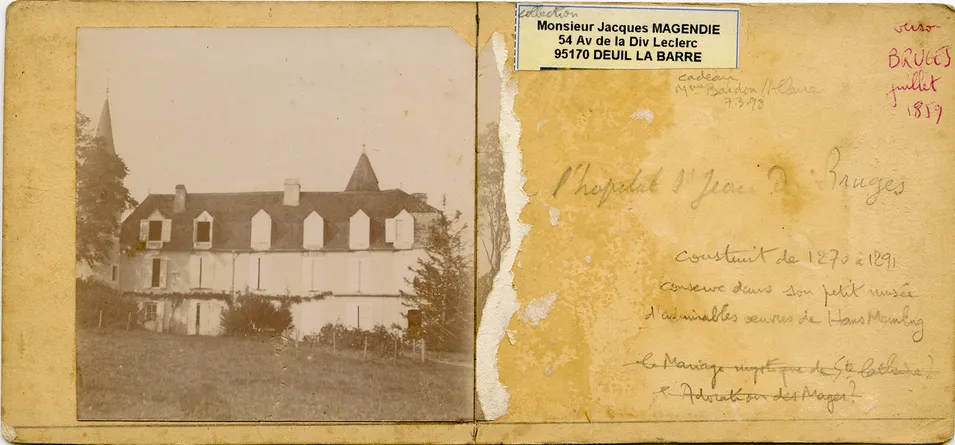 collection
Monsieur Jacques MAGENDIE
54 Av de la Div Leclerc
95170 DEUIL LA BARRE
cadeau
Mme Baudon/Allaire
7.3.98
verso
BRUGES
juillet
1859
l'hopital St Jean Bruges
construit de 1270 à 1291
conserve dans son petit musée
d'admirables œuvres de Hans Memling
le Mariage mystique de Ste Catherine?
Adoration des Mages?